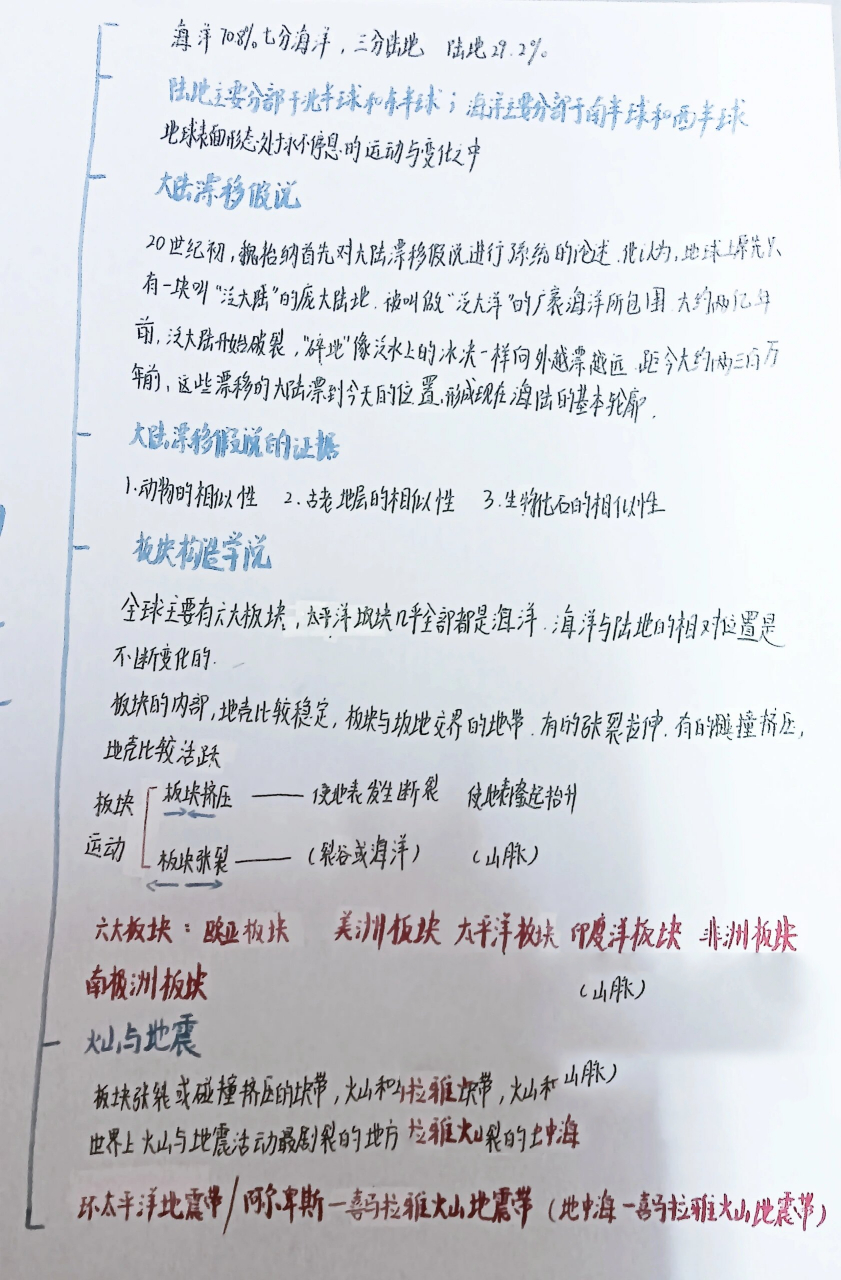 海洋70.8% 七分海洋，三分陆地 陆地29.2%。
陆地主要分部于北半球和东半球；海洋主要分部于南半球和西半球
地球表面形态处于永不停息的运动与变化之中
大陆漂移假说
20世纪初，魏格纳首先对大陆漂移假说进行了系统的论述.他认为，地球上原先只
有一块叫“泛大陆”的庞大陆地.被叫做“泛大洋”的广袤海洋所包围 大约两亿年
前，泛大陆开始破裂，“碎地”像泛水上的冰决一样向外越漂越远.距今大约两三百万
年前，这些漂移的大陆漂到今天的位置.形成现在海陆的基本轮廓.
大陆漂移假说的证据
1.动物的相似性 2.古老地层的相似性 3.生物化石的相似性
板块构造学说
全球主要有六大板块，太平洋块几乎全部都是海洋.海洋与陆地的相对位置是
不断变化的.
板块的内部，地壳比较稳定，板块与地交界的地带.有的张裂拉伸.有的碰撞挤压，
地壳比较活跃
板块 板块挤压 —— 使地表发生断裂 使地表隆起抬升
运动 板块张裂 —— （裂谷或海洋） （山脉）
六大板块：欧亚板块 美洲板块 太平洋板块 印度洋板块 非洲板块
南极洲板块 （山脉）
火山与地震
板块张裂或碰撞挤压的块带，火山和拉雅块带，火山和 山脉）
世界上火山与地震活动最剧裂的地方 拉雅火山裂的中海
环太平洋地震带/阿尔卑斯—喜马拉雅火山地震带（地中海—喜马拉雅火山地震带）